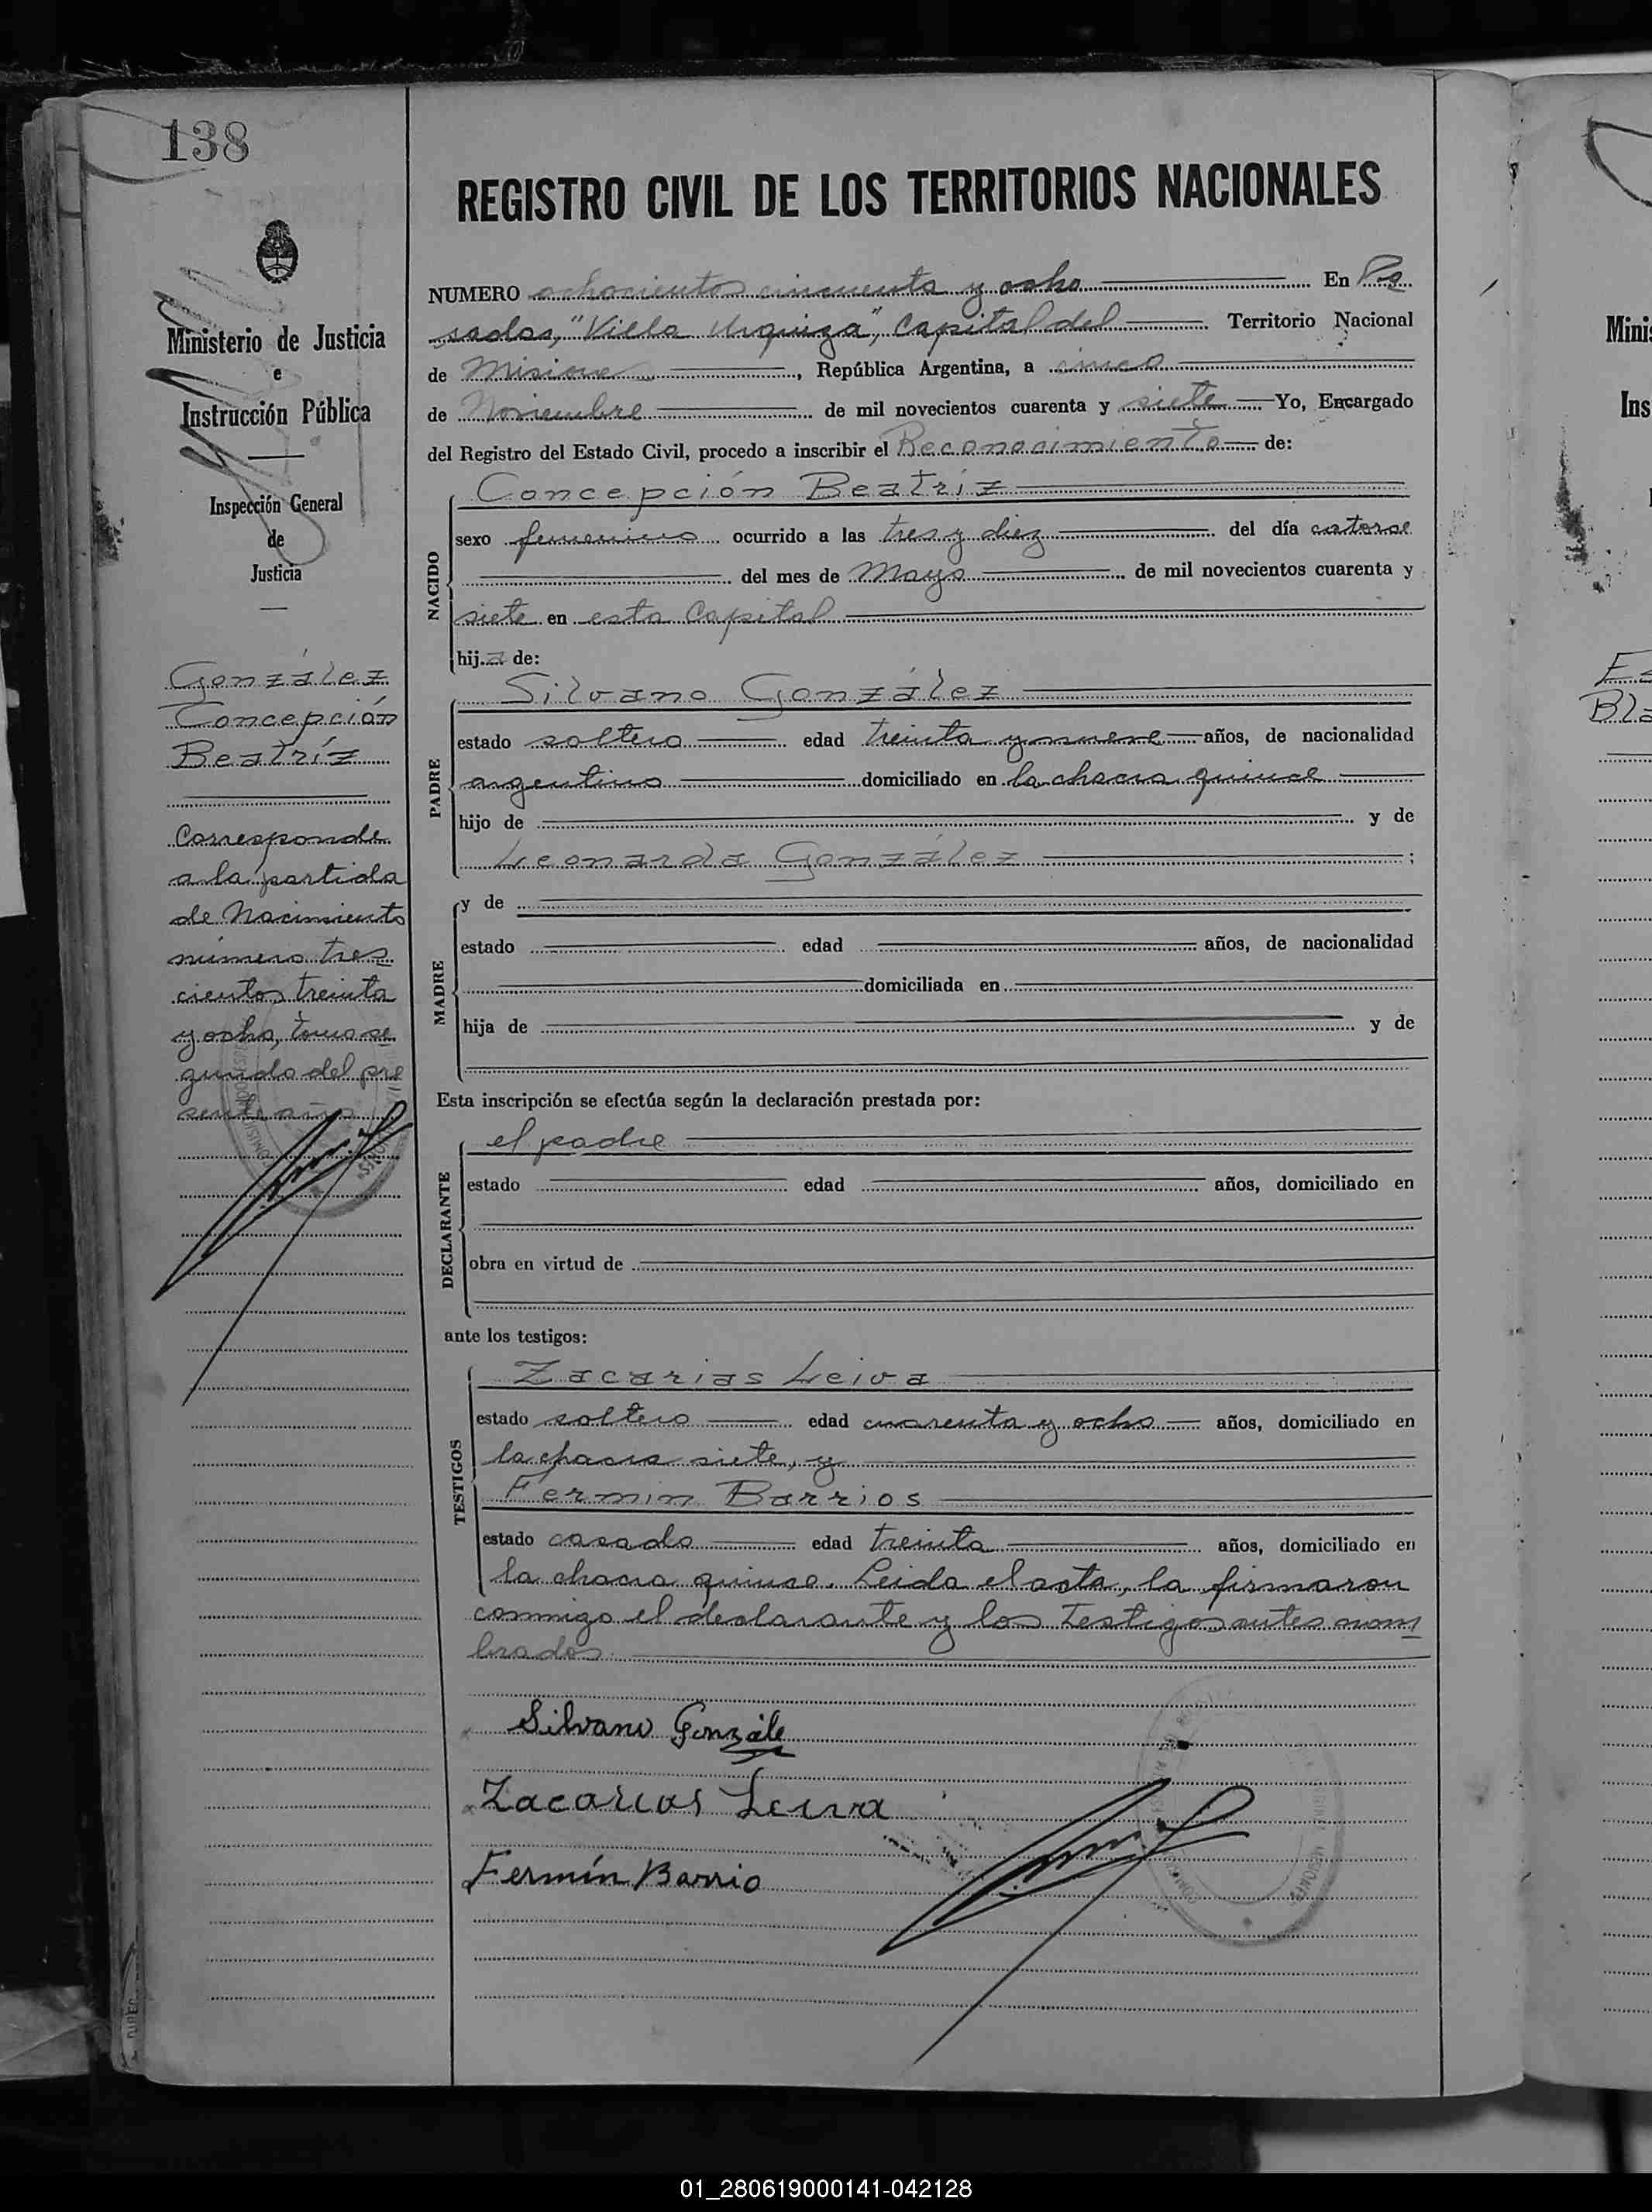 138
REGISTRO CIVIL DE LOS TERRITORIOS NACIONALES
Ministerio de Justicia
e
Instrucción Pública
Inspección General
de
Justicia
González
Concepción
Beatríz
Corresponde
a la partida
de Nacimiento
número tres
cientos treinta
y ocho, tomo se
gundo del pre
sente año
NUMERO ochocientos cincuenta y ocho En Po
sadas, "Villa Urquiza", Capital del Territorio Nacional
de Misiones, República Argentina, a cinco
de Noviembre de mil novecientos cuarenta y siete Yo, Encargado
del Registro del Estado Civil, procedo a inscribir el Reconocimiento de:
NACIDO
Concepción Beatríz
sexo femenino ocurrido a las tres y diez del día catorce
del mes de Mayo de mil novecientos cuarenta y
siete en esta Capital
hija de:
PADRE
Silvano González
estado soltero edad treinta y nueve años, de nacionalidad
argentino domiciliado en la chacra quince
hijo de y de
Leonarda González;
MADRE
y de
estado edad años, de nacionalidad
domiciliada en
hija de y de
Esta inscripción se efectúa según la declaración prestada por:
DECLARANTE
el padre
estado edad años, domiciliado en
obra en virtud de
ante los testigos:
TESTIGOS
Zacarias Leiva
estado soltero edad cuarenta y ocho años, domiciliado en
la chacra siete, y
Fermin Barrios
estado casado edad treinta años, domiciliado en
la chacra quince. Leida el acta, la firmaron
conmigo el declarante y los testigos antes nom
brados.
Silvano Gonzále
Zacarias Leiva
Fermín Barrio
Minis
Ins
01_280619000141-042128